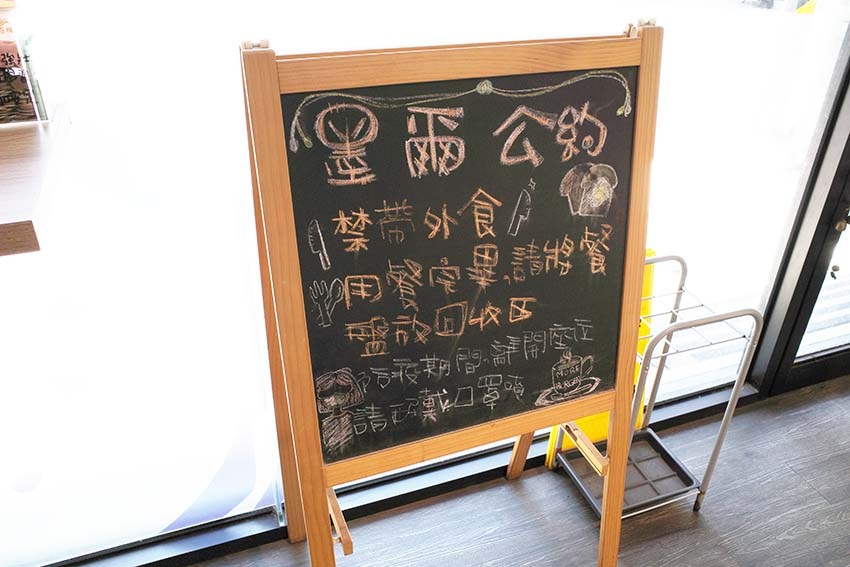 墨爾公約
禁帶外食
用餐完畢,請將餐
盤放回收區
防疫期間,離開座位
請配戴口罩噢
MORE
BURGER